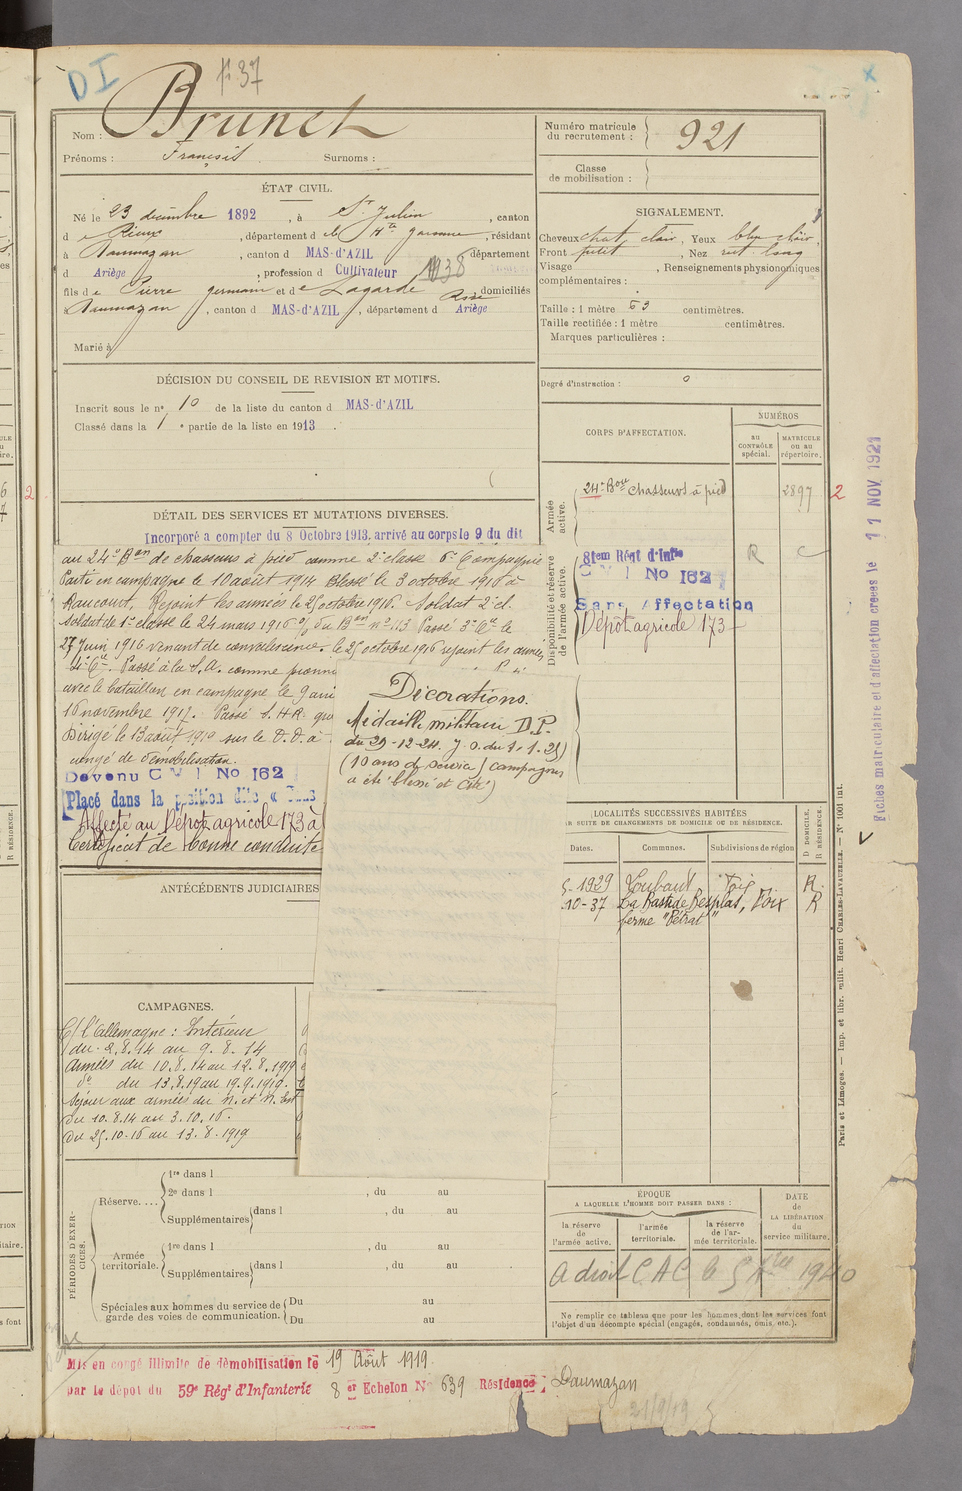 DI
fo 37
Nom : Brunet
Prénoms : François Surnoms :
Numéro matricule
du recrutement : 921
Classe
de mobilisation :
ÉTAT CIVIL.
Né le 23 décembre 1892, à St Julien, canton
de Rieux, département de la Hte Garonne, résidant
à Daumazan, canton d MAS-d'AZIL département
d Ariège, profession d Cultivateur
1938
fils de Pierre germain et de Lagarde Assé domiciliés
à Daumazan, canton d MAS-d'AZIL, département d Ariège
Marié à
SIGNALEMENT.
Cheveux chat. clair, Yeux bleu clair,
Front petit, Nez rect. long
Visage , Renseignements physionomiques
complémentaires :
Taille : 1 mètre 63 centimètres.
Taille rectifiée : 1 mètre centimètres.
Marques particulières :
Degré d'instruction : 0
DÉCISION DU CONSEIL DE REVISION ET MOTIFS.
Inscrit sous le no 10 de la liste du canton d MAS-d'AZIL
Classé dans la 1e partie de la liste en 1913.
DÉTAIL DES SERVICES ET MUTATIONS DIVERSES.
Incorporé a compter du 8 Octobre 1913, arrivé au corps le 9 du dit
au 24e Bon de chasseurs à pied comme 2e classe 6e Compagnie
Parti en campagne le 10 août 1914 Blessé le 3 octobre 1916 à
Rancourt. Rejoint les armées le 25 octobre 1916. Soldat 2e cl.
Soldat de 1e classe le 24 mars 1916 o/ du Bon no 113 Passé 3e Cie le
27 Juin 1916 venant de convalescence. le 25 octobre 1916 rejoint les armées
4e Cie. Passé à la S.A. comme pionni
avec le bataillon en campagne le 9
16 novembre 1917. Passé S.H.R.
Dirigé le 13 août 1919 sur le D.D. à
congé de démobilisation.
Devenu C M I No 162
Placé dans la position dite « Sans
Affecté au Dépot agricole 173 à
Certificat de bonne conduite
Décorations.
Médaille militaire D.P.
du 29-12-24. J.O. du 1-1-25)
(10 ans de service / campagnes
a été blessé et cité)
CORPS D'AFFECTATION.
NUMÉROS
au
CONTRÔLE
spécial.
MATRICULE
ou au
répertoire.
Armée
active.
24e Bon Chasseurs à pied 2897
2
2
Disponibilité et réserve
de l'armée active.
81em Régt d'Infie R
C M I No 162
Sans Affectation
Dépôt agricole 173
Fiches matriculaire et d'affectation créées le 11 NOV 1921
LOCALITÉS SUCCESSIVES HABITÉES
PAR SUITE DE CHANGEMENTS DE DOMICILE OU DE RÉSIDENCE.
Dates. Communes. Subdivisions de région
D DOMICILE.
R RÉSIDENCE.
5-1929 Loubaut Foix R.
10-37 La Bastide Besplas, Foix R
ferme "Pétrat"
ANTÉCÉDENTS JUDICIAIRES
CAMPAGNES.
C/ l'Allemagne : Intérieur
du 2.8.14 au 9.8.14
Armées du 10.8.14 au 12.8.1919
do du 13.8.19 au 19.9.1919.
Séjour aux armées du N. et N. Est
du 10.8.14 au 3.10.16.
du 25.10.16 au 13.8.1919
PÉRIODES D'EXERCICES.
Réserve....
1re dans l
2e dans l , du au
Supplémentaires dans l , du au
Armée
territoriale.
1re dans l , du au
Supplémentaires dans l , du au
Spéciales aux hommes du service de
garde des voies de communication.
Du au
Du au
ÉPOQUE
A LAQUELLE L'HOMME DOIT PASSER DANS :
la réserve
de
l'armée active.
l'armée
territoriale.
la réserve
de l'armée territoriale.
DATE
de
LA LIBÉRATION
du
service militaire.
a droit C A C le 5 1940
Ne remplir ce tableau que pour les hommes dont les services font
l'objet d'un décompte spécial (engagés, condamnés, omis, etc.).
Paris et Limoges. — Imp. et libr. milit. Henri CHARLES-LAVAUZELLE. — No 1001 int.
Mis en congé illimité de démobilisation le 19 Août 1919.
par le dépot du 59e Régt d'Infanterie 8 er Echelon No 639 Résidence Daumazan
21/9/19